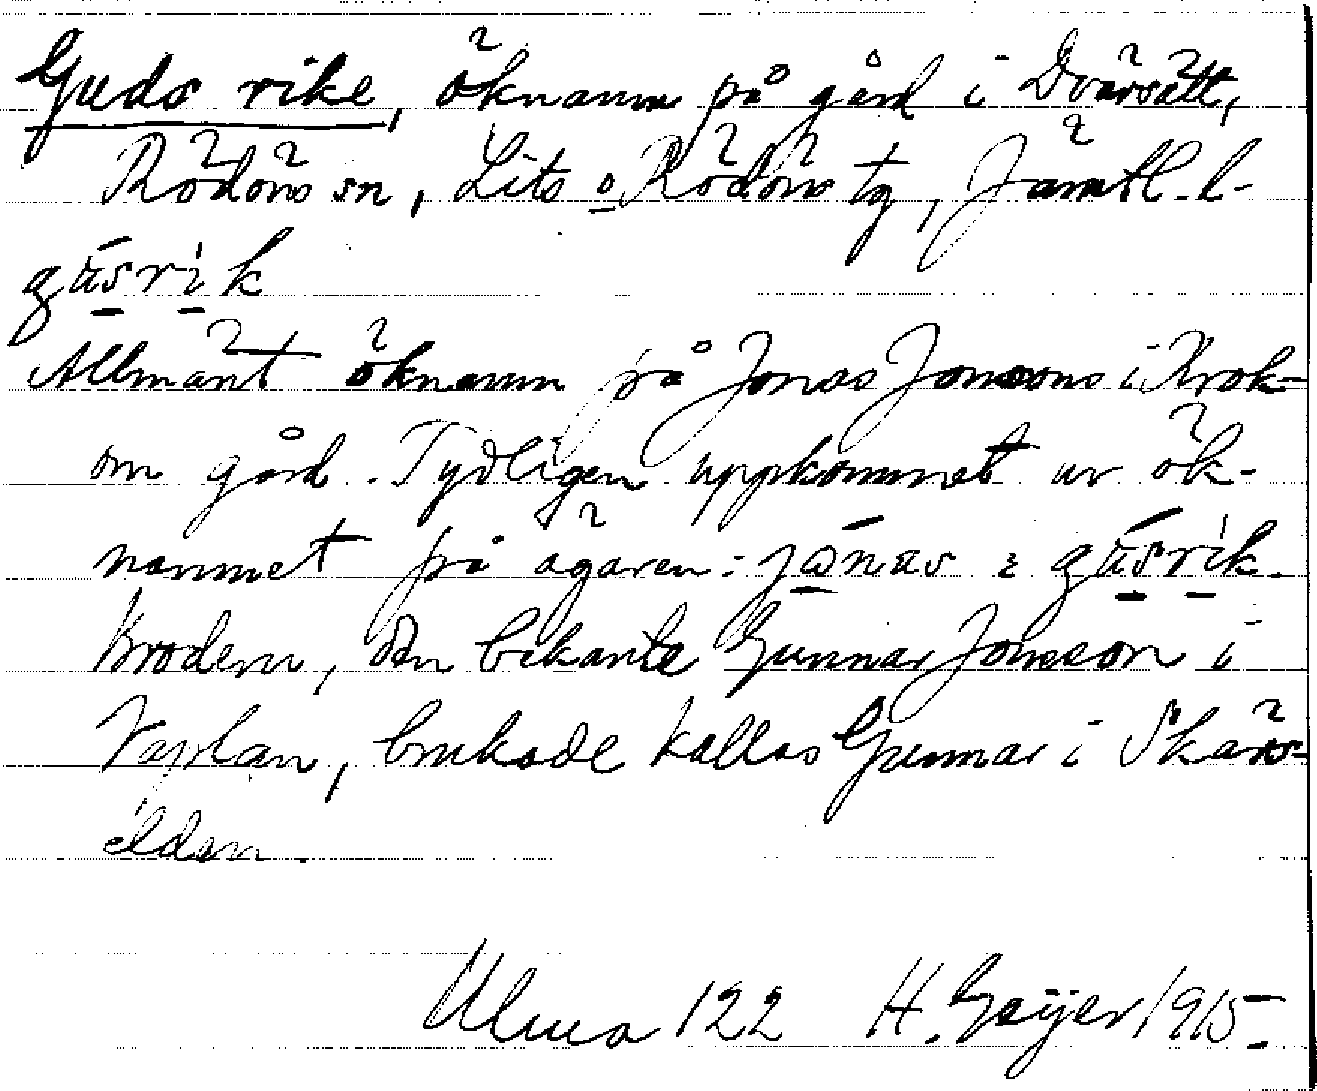 Guds rike, öknamn på gård i Dvärsätt,
Rödöns sn, Lits o Rödöns tg, Jämtl. l-
gu̅srik
Allmänt öknamn på Jonas Jonssons i Krok-
om gård. Tydligen uppkommet ur ök-
namnet på ägaren: jo̅nas i gu̅srik.
Brodern, den bekante Gunnar Jonsson i
Vaplan, brukade kallas Gunnar i Skärs-
elden.
Ulma 122 H. Geijer 1915.